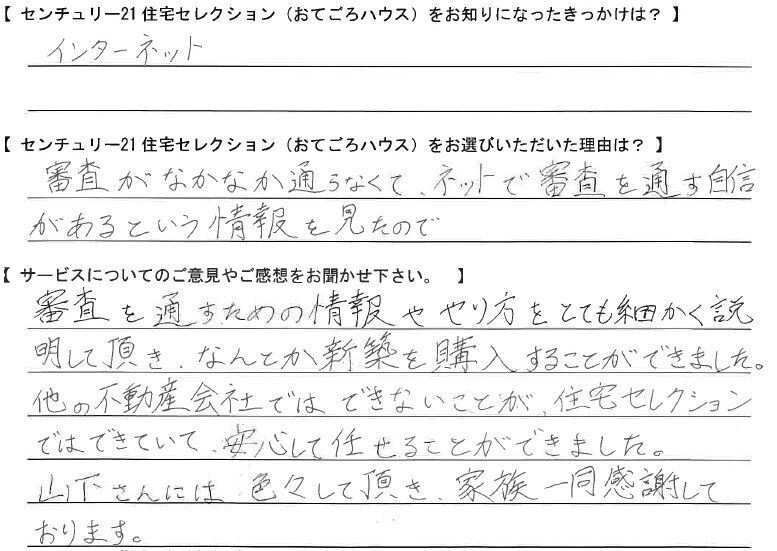 【 センチュリー21住宅セレクション（おてごろハウス）をお知りになったきっかけは？ 】
インターネット
【 センチュリー21住宅セレクション（おてごろハウス）をお選びいただいた理由は？ 】
審査がなかなか通らなくて、ネットで審査を通す自信
があるという情報を見たので
【 サービスについてのご意見やご感想をお聞かせ下さい。 】
審査を通すための情報ややり方をとても細かく説
明して頂き、なんとか新築を購入することができました。
他の不動産会社ではできないことが、住宅セレクション
ではできていて、安心して任せることができました。
山下さんには色々して頂き、家族一同感謝して
おります。